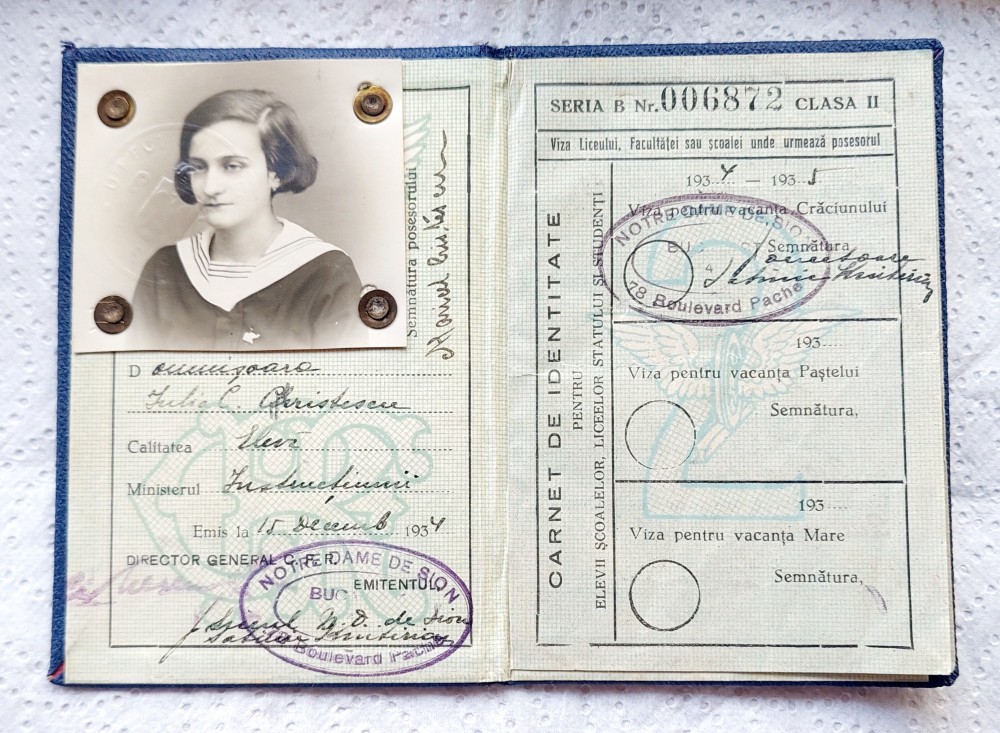 Semnătura posesorului
D omnișoara
Iulia C. Christescu
Calitatea Elevă
Ministerul Instrucțiunii
Emis la 15 Decemb 1934
DIRECTOR GENERAL C. F. R.
EMITENTUL,
NOTRE DAME DE SION
BUC
Boulevard Pache
SERIA B Nr. 006872 CLASA II
Viza Liceului, Facultăței sau școalei unde urmează posesorul
CARNET DE IDENTITATE
PENTRU
ELEVII ȘCOALELOR, LICEELOR STATULUI ȘI STUDENȚI
1934 — 1935
Viza pentru vacanța Crăciunului
Semnătura
NOTRE DAME DE SION
78 Boulevard Pache
193
Viza pentru vacanța Paștelui
Semnătura,
193
Viza pentru vacanța Mare
Semnătura,